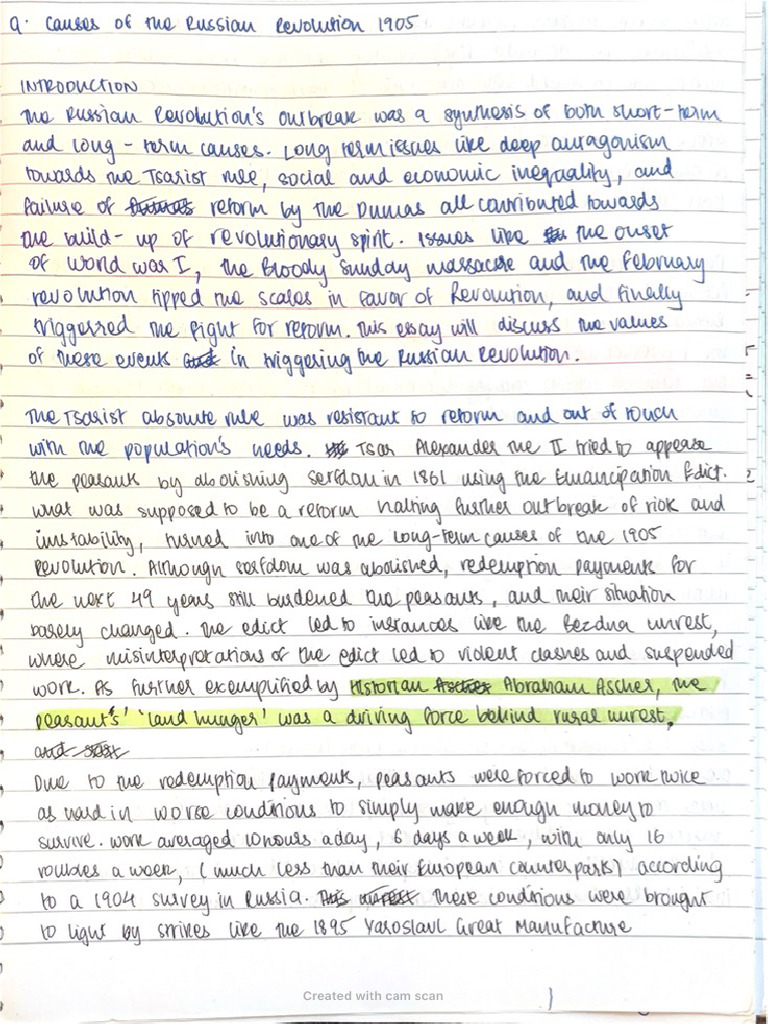 Q. Causes of the Russian Revolution 1905
INTRODUCTION
The Russian Revolution's outbreak was a synthesis of both short-term
and long-term causes. Long term issues like deep antagonism
towards the Tsarist rule, social and economic inequality, and
failure of reform by the Dumas all contributed towards
the build-up of revolutionary spirit. Issues like the onset
of World War I, the Bloody Sunday massacre and the February
revolution tipped the scales in favor of Revolution, and finally
triggerred the fight for reform. This essay will discuss the values
of these events in triggering the Russian Revolution.
The Tsarist absolute rule was resistant to reform and out of touch
with the population's needs. Tsar Alexander the II tried to appease
the peasants by abolishing serfdom in 1861 using the Emancipation Edict.
2
What was supposed to be a reform halting further outbreak of riot and
instability, turned into one of the long-term causes of the 1905
Revolution. Although serfdom was abolished, redemption payments for
the next 49 years still burdened the peasants, and their situation
barely changed. The edict led to instances like the Bezdna unrest,
where misinterpretations of the edict led to violent clashes and suspended
work. As further exemplified by Historian Abraham Ascher, the
peasant's' 'land hunger' was a driving force behind rural unrest,
Due to the redemption payments, peasants were forced to work twice
as hard in worse conditions to simply make enough money to
survive. Work averaged 10 hours a day, 6 days a week, with only 16
roubles a week, (much less than their European counterparts) according
to a 1904 survey in Russia. These conditions were brought
to light by strikes like the 1895 Yaroslavl Great Manufacture
Created with cam scan
1